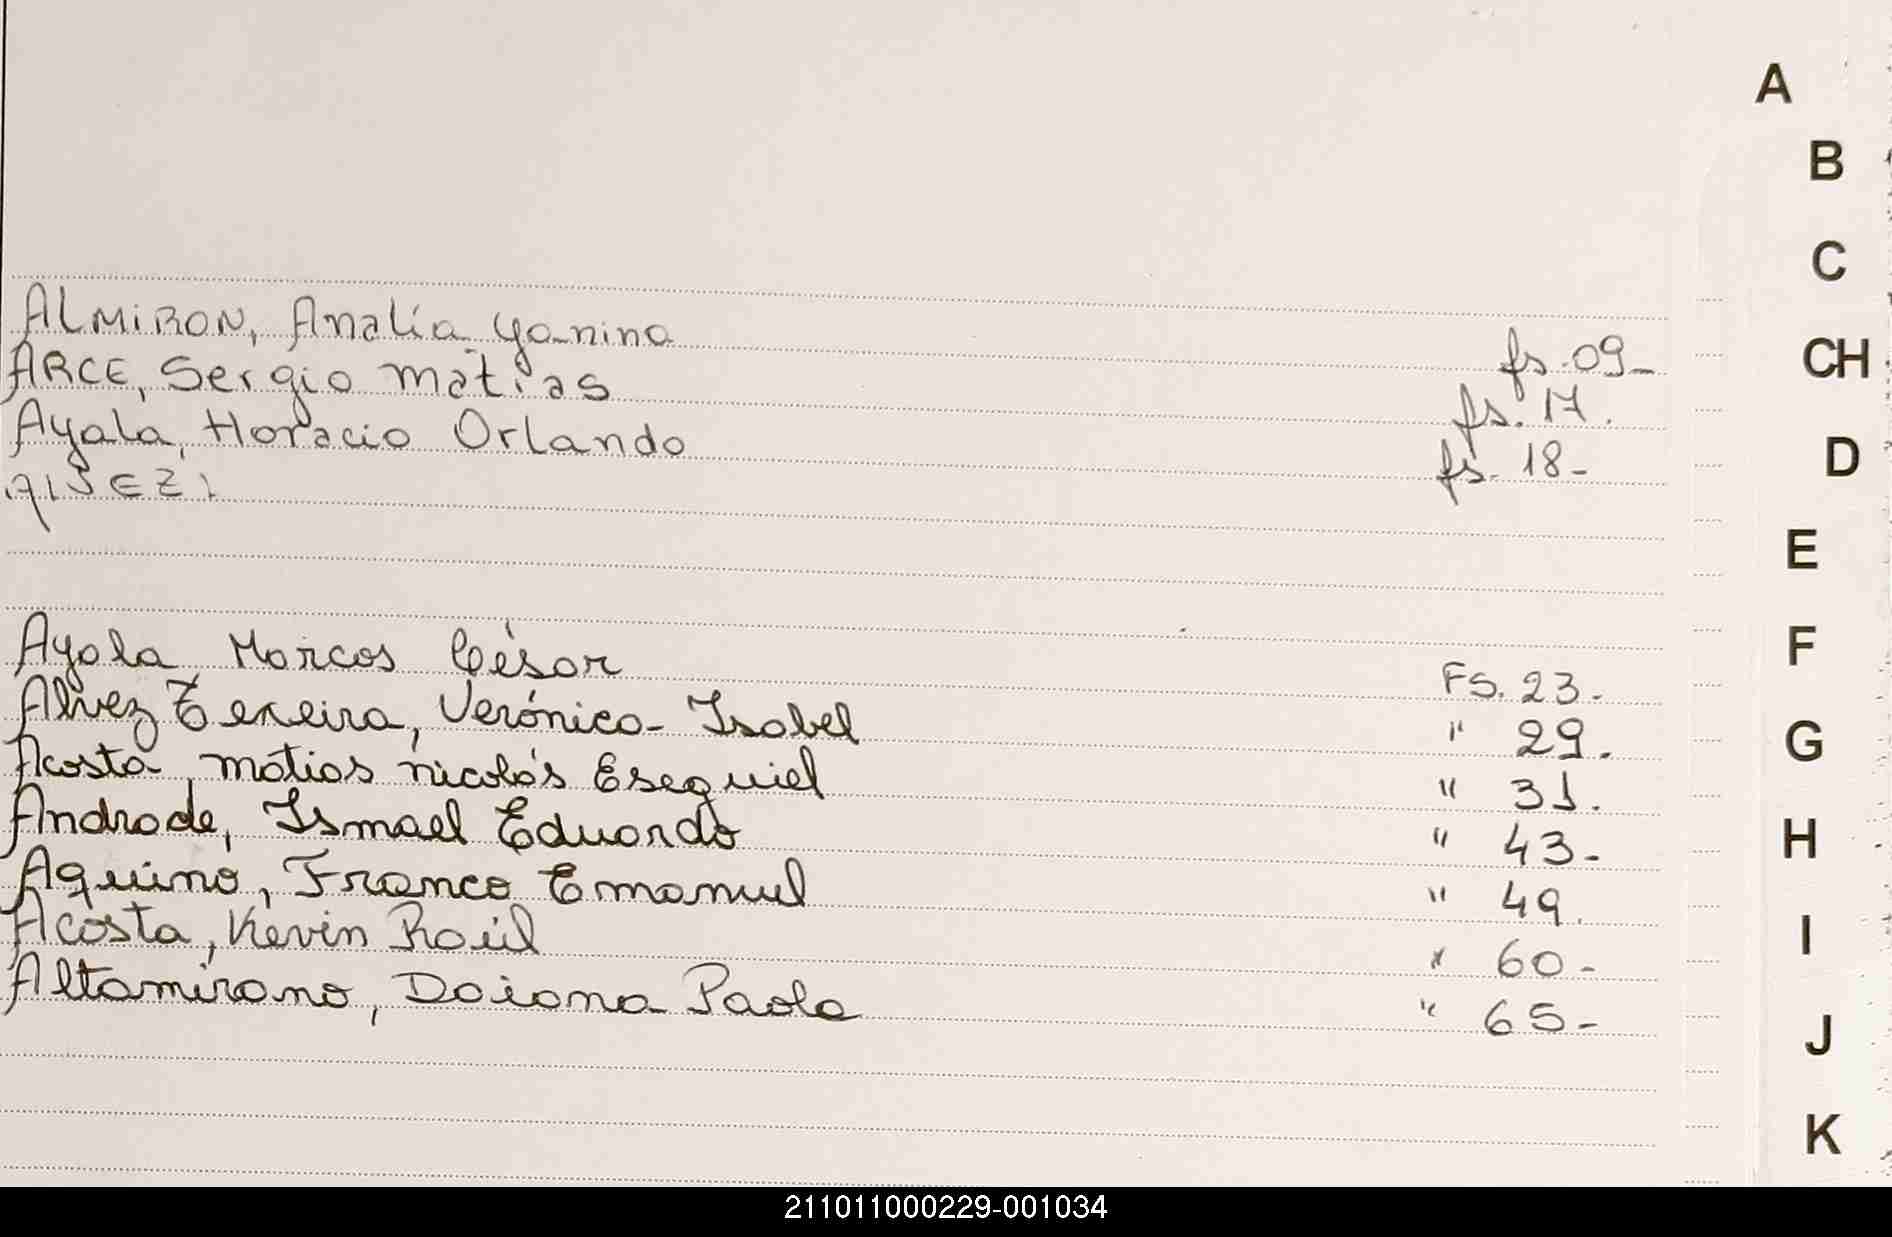 A
B
C
ALMIRON, Analía Yanina fs. 09-
CH
ARCE, Sergio Matías fs. 17.
Ayala, Horacio Orlando fs. 18-
D
E
F
Ayala Marcos César FS. 23.-
Alvez Texeira, Verónica Isabel " 29.
G
Acosta, matias nicolás Esequiel " 31.
Andrade, Ismael Eduardo " 43-
H
Aquino, Franco Emanuel " 49.
Acosta, Kevin Raúl " 60-
I
Altamirano, Daiana Paola " 65-
J
K
211011000229-001034